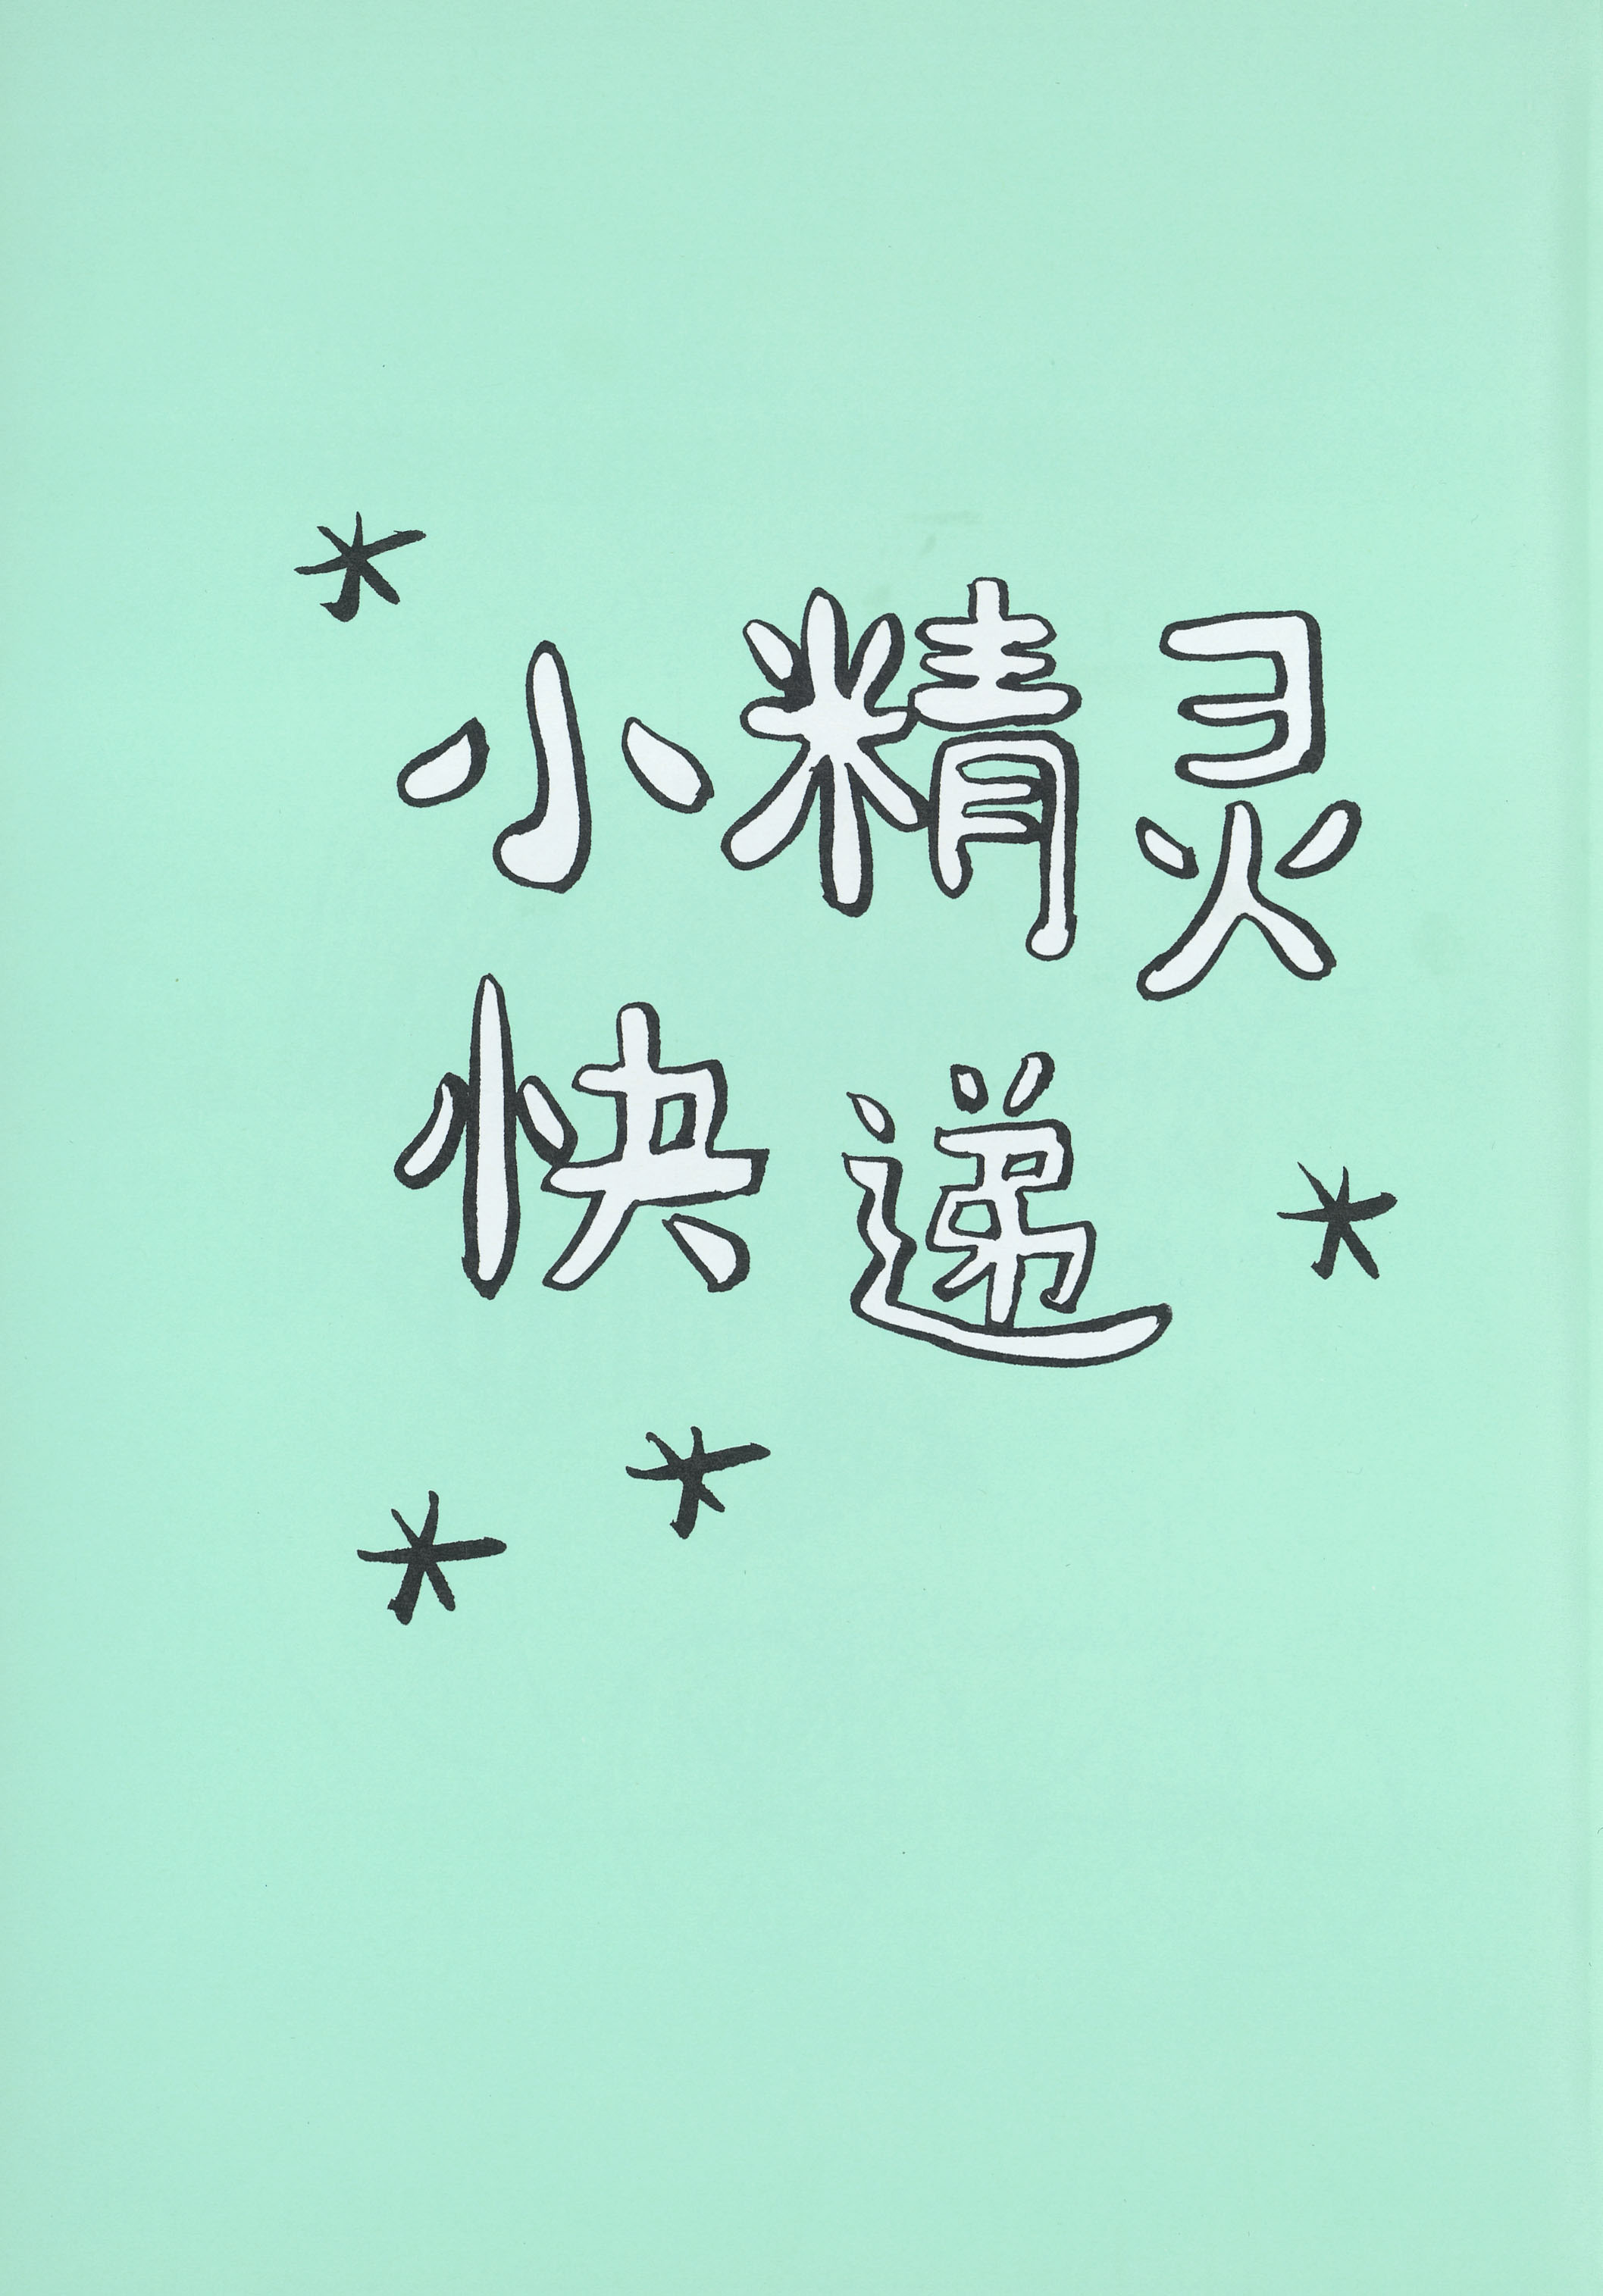 小精灵
快递